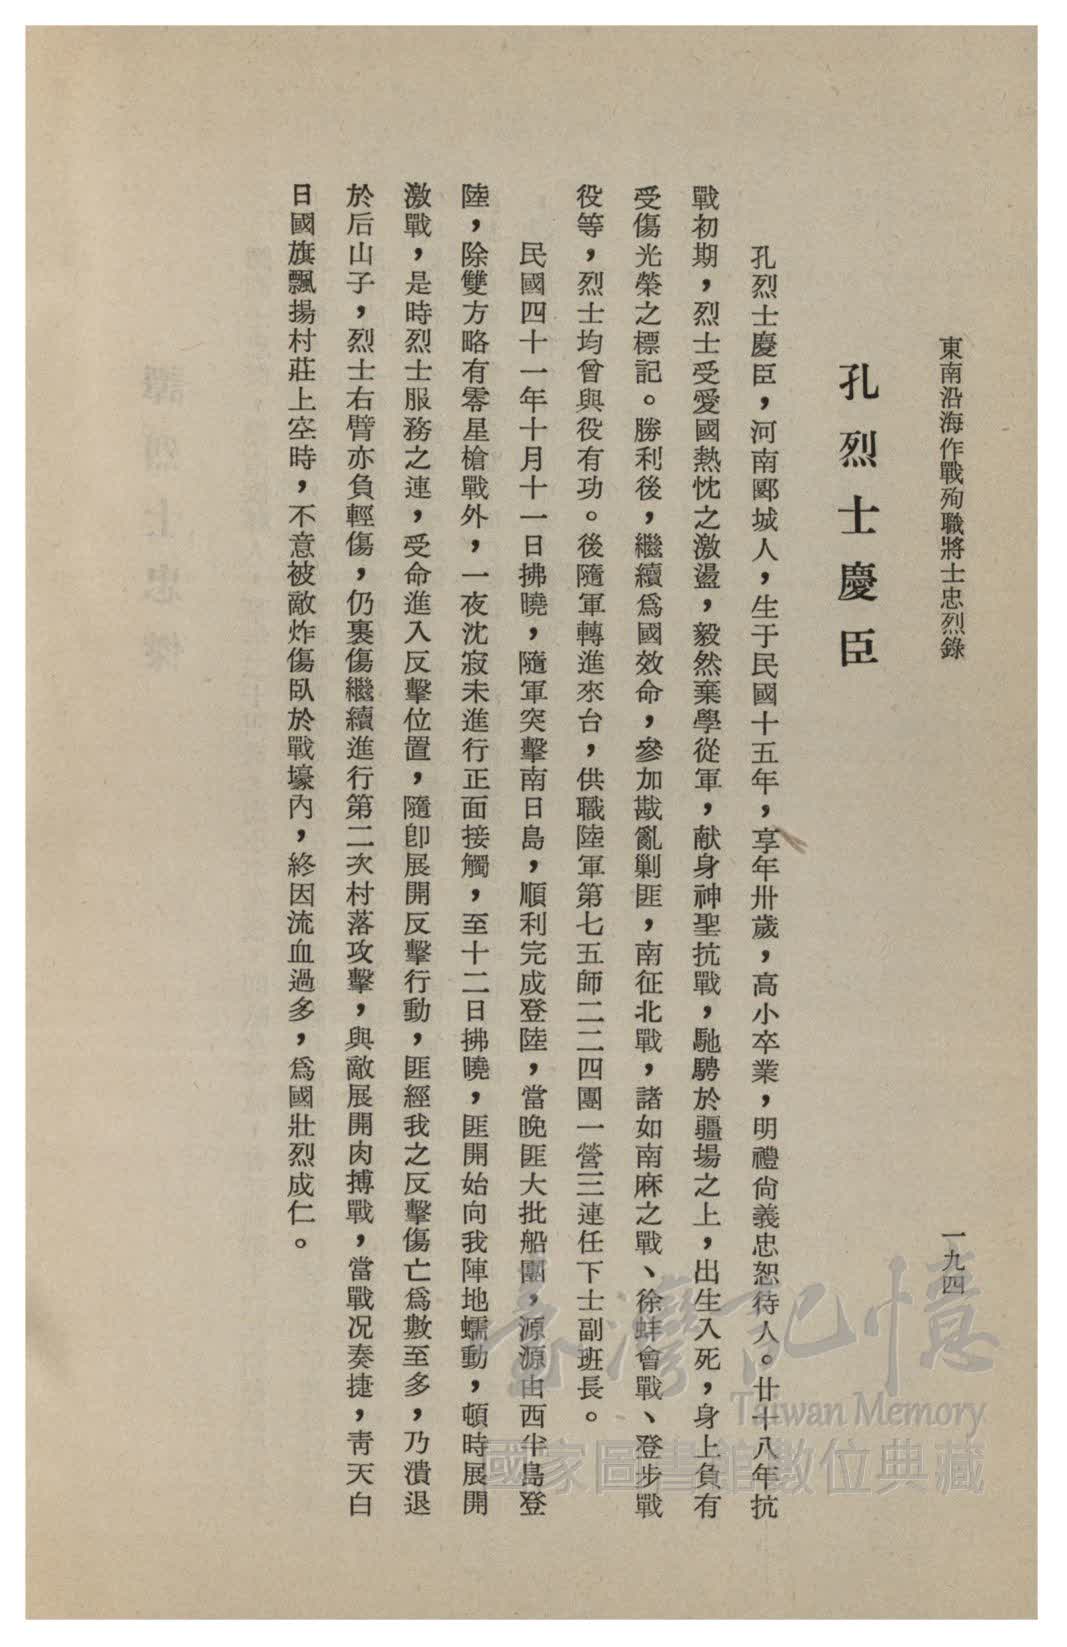 東南沿海作戰殉職將士忠烈錄
一九四
孔烈士慶臣
孔烈士慶臣，河南郾城人，生于民國十五年，享年卅歲，高小卒業，明禮尙義忠恕待人。廿十八年抗
戰初期，烈士受愛國熱忱之激盪，毅然棄學從軍，献身神聖抗戰，馳騁於疆場之上，出生入死，身上負有
受傷光榮之標記。勝利後，繼續爲國效命，參加戡亂剿匪，南征北戰，諸如南麻之戰、徐蚌會戰、登步戰
役等，烈士均曾與役有功。後隨軍轉進來台，供職陸軍第七五師二二四團一營三連任下士副班長。
民國四十一年十月十一日拂曉，隨軍突擊南日島，順利完成登陸，當晚匪大批船團，源源由西半島登
陸，除雙方略有零星槍戰外，一夜沈寂未進行正面接觸，至十二日拂曉，匪開始向我陣地蠕動，頓時展開
激戰，是時烈士服務之連，受命進入反擊位置，隨卽展開反擊行動，匪經我之反擊傷亡爲數至多，乃潰退
於后山子，烈士右臂亦負輕傷，仍裹傷繼續進行第二次村落攻擊，與敵展開肉搏戰，當戰况奏捷，靑天白
日國旗飄揚村莊上空時，不意被敵炸傷臥於戰壕內，終因流血過多，爲國壯烈成仁。
臺灣記憶
Taiwan Memory
國家圖書館數位典藏